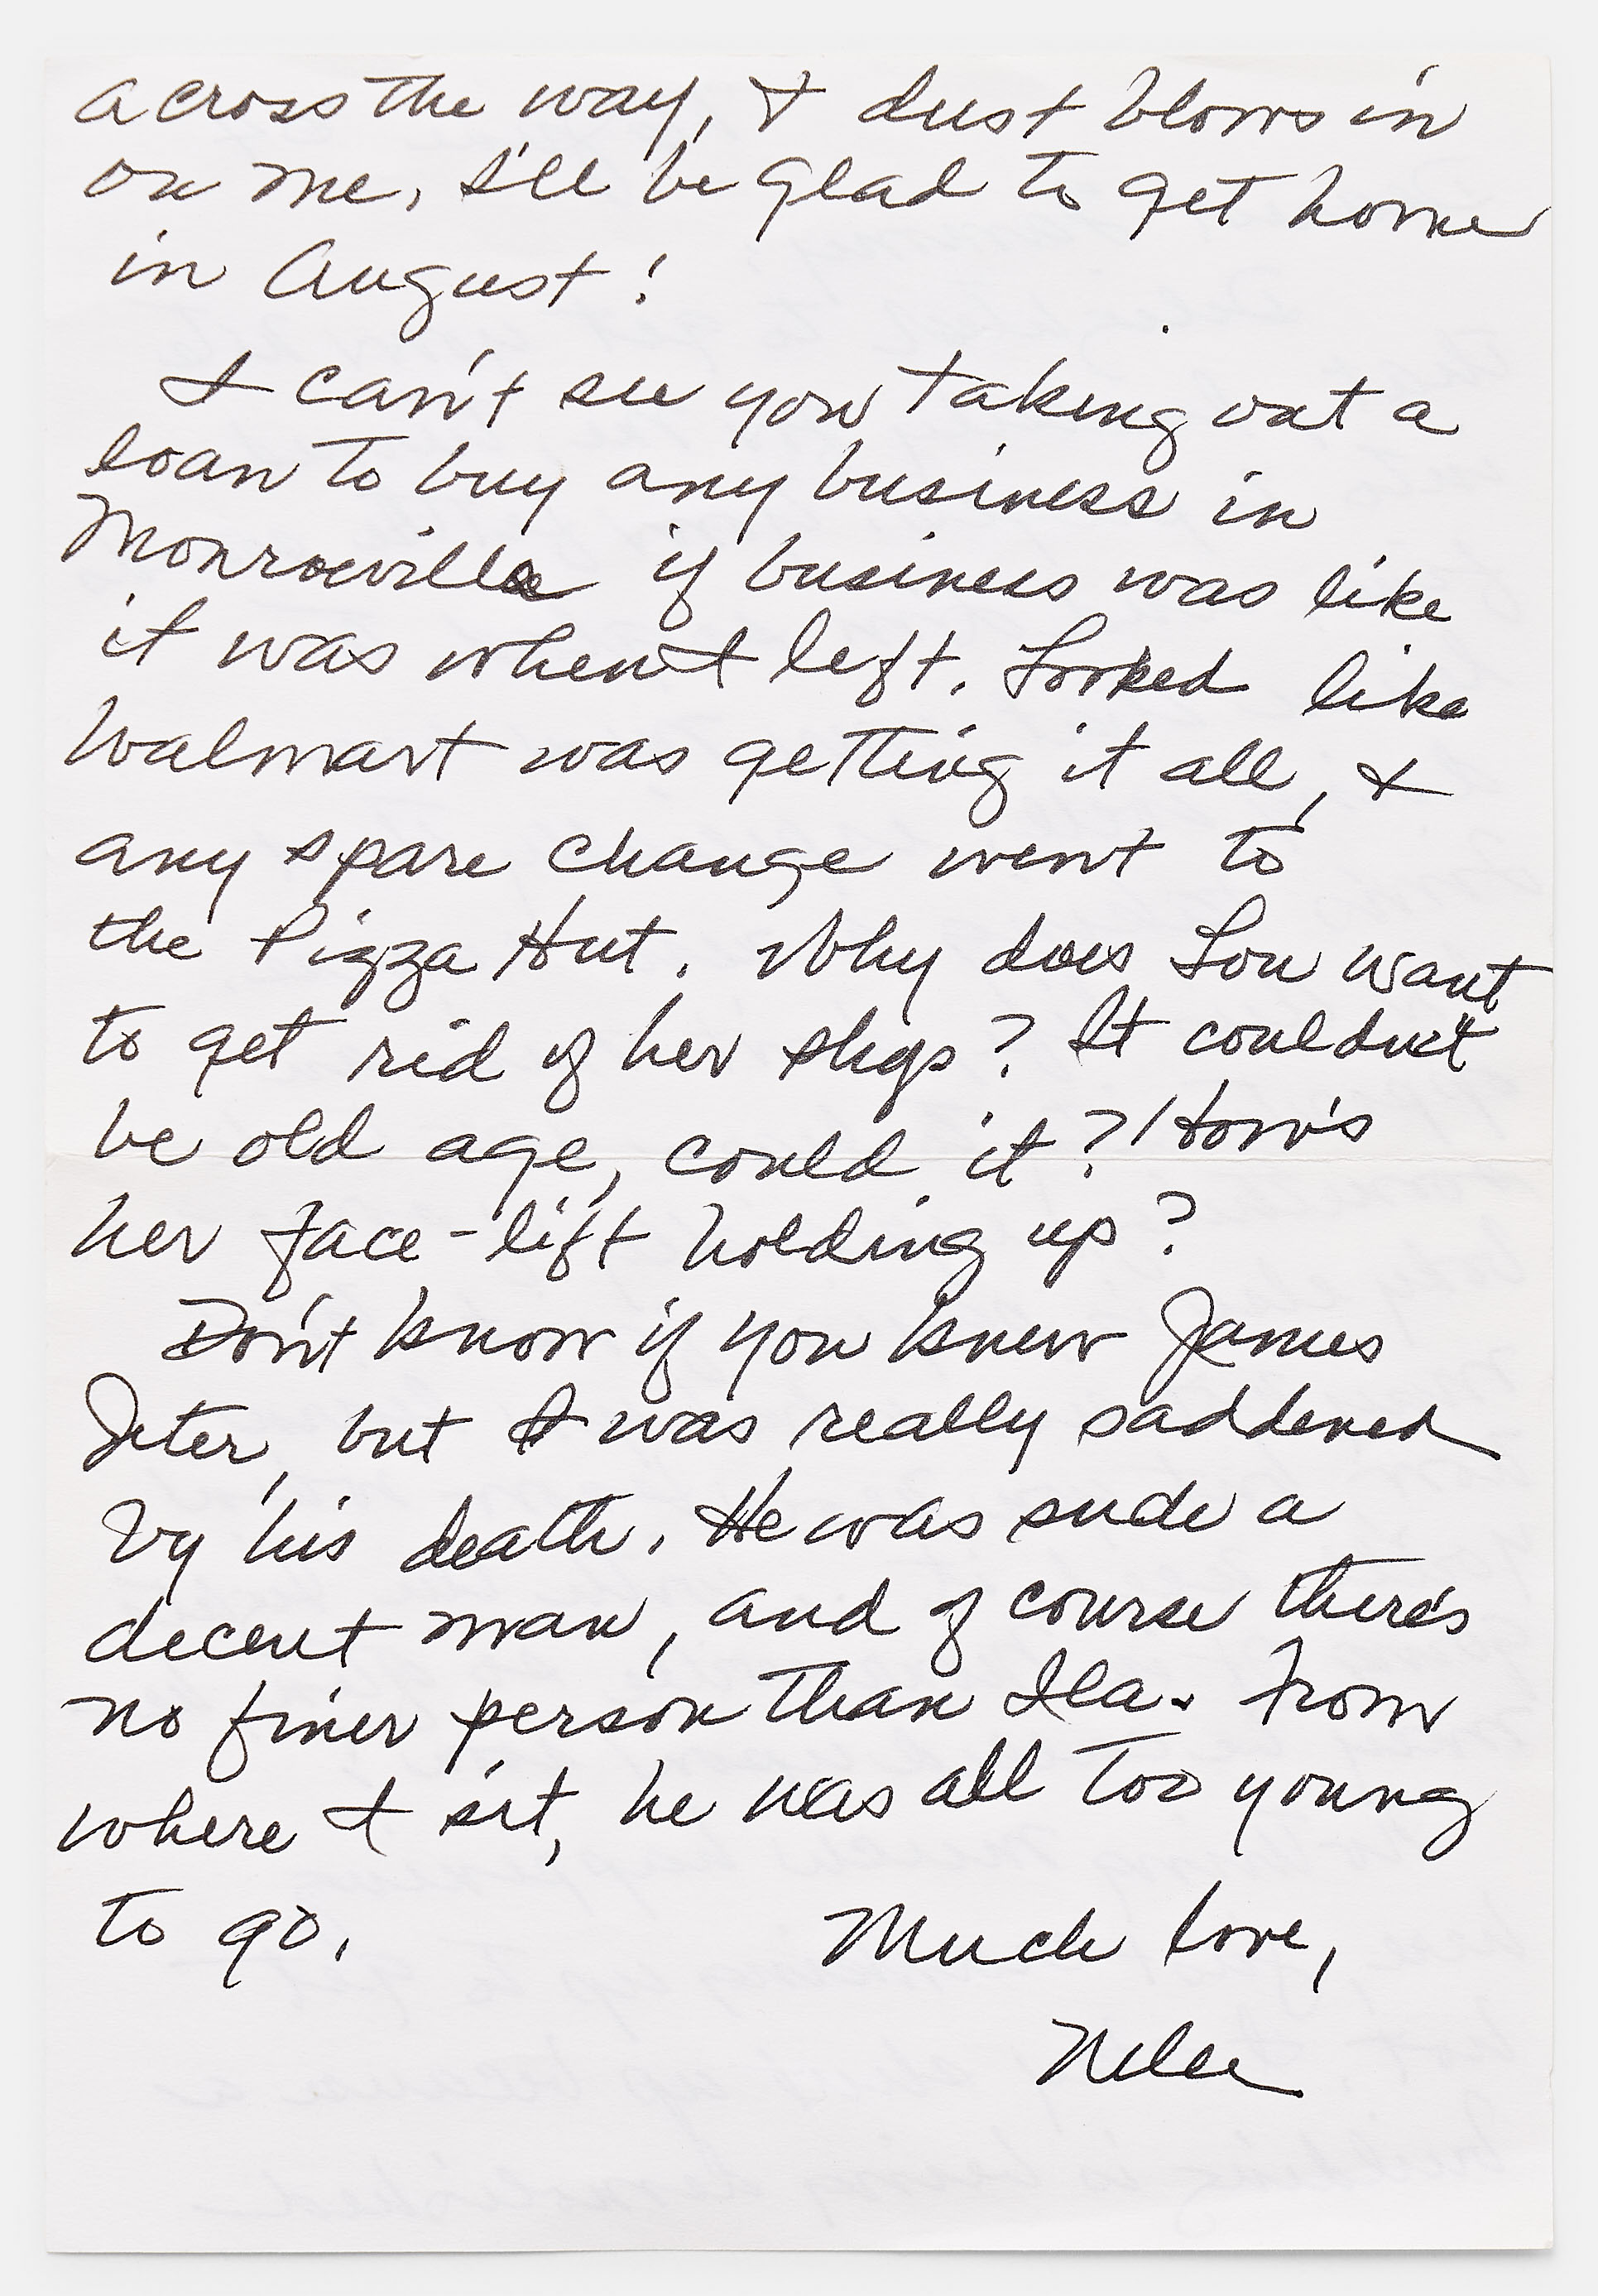 across the way, & dust blows in
on me. I'll be glad to get home
in August!
I can't see you taking out a
loan to buy any business in
Monroeville if business was like
it was when I left. Looked like
Walmart was getting it all, &
any spare change went to
the Pizza Hut. Why does Lou want
to get rid of her shops? It couldn't
be old age, could it? How's
her face-lift holding up?
Don't know if you knew James
Jeter, but I was really saddened
by his death. He was such a
decent man, and of course there's
no finer person than Ila. From
where I sit, he was all too young
to go.
Much love,
Nelle